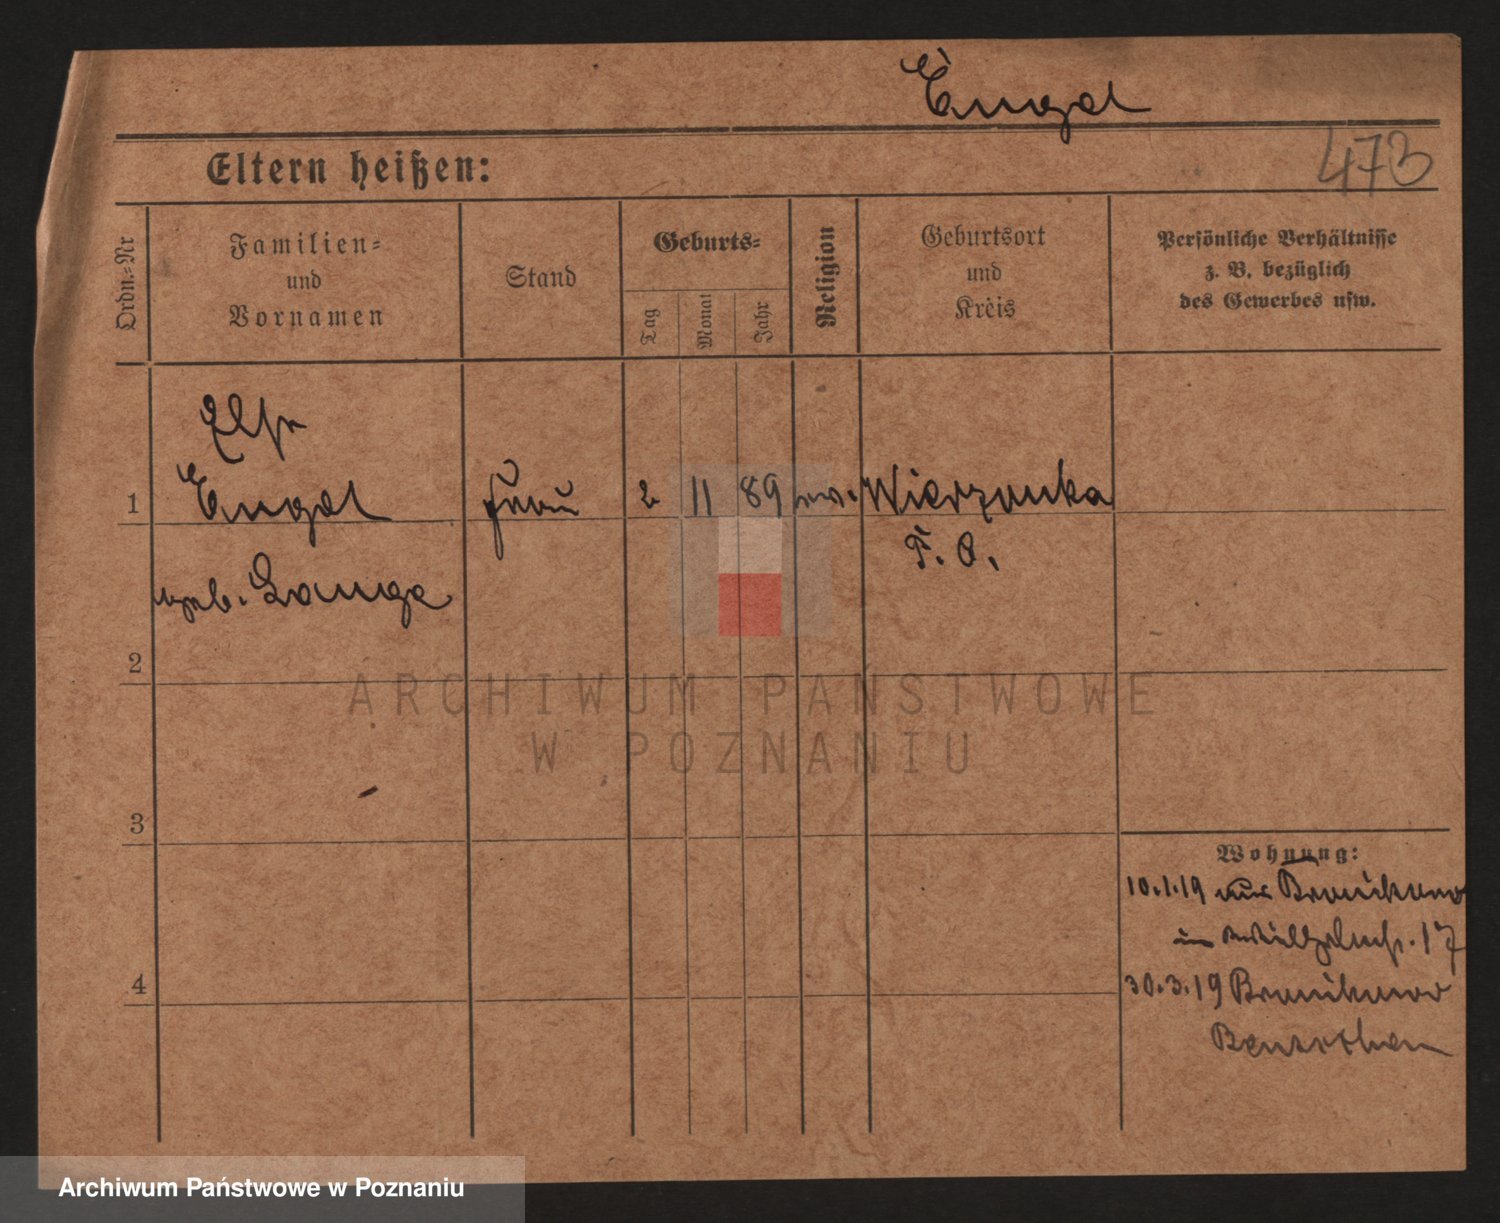 Engel
Eltern heißen:
473
Ordn.=Nr
Familien=
und
Vornamen
Stand
Geburts=
Tag
Monat
Jahr
Religion
Geburtsort
und
Kreis
Persönliche Verhältnisse
z. B. bezüglich
des Gewerbes usw.
Else
1
Engel
Frau
2
11
89
ev.
Wierzonka
P. O.
geb. Lange
2
ARCHIWUM PAŃSTWOWE
W POZNANIU
3
Wohnung:
10.1.19 aus
in Wilhelmstr. 17
4
30.3.19
Archiwum Państwowe w Poznaniu